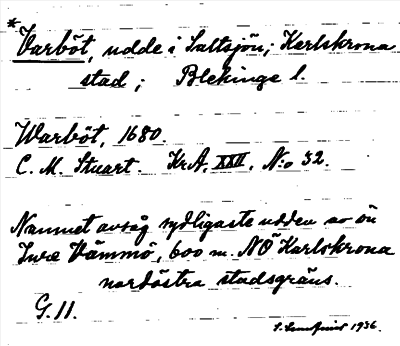 *Varböt, udde i Saltsjön; Karlskrona
stad; Blekinge l.
Warböt, 1680.
C. M. Stuart. KrA. XXII, N:o 32.
Namnet avsåg sydligaste udden av ön
Inre Vämmö, 600 m. NÖ Karlskrona
nordöstra stadsgräns.
G. 11.
1936.